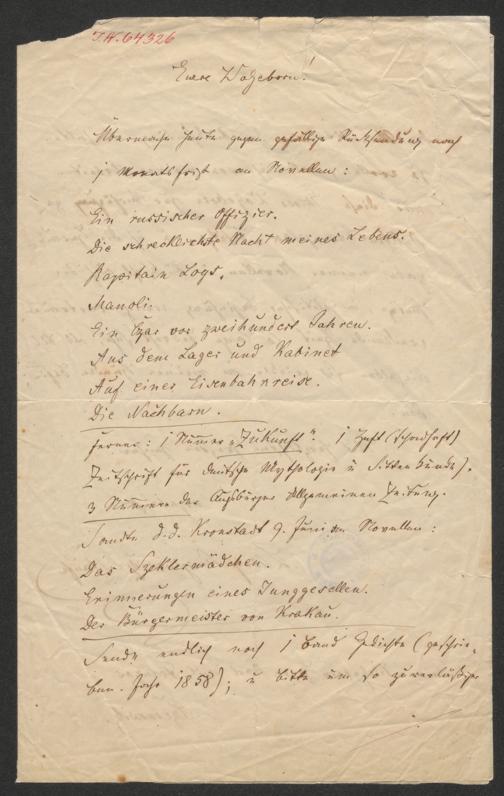 I.N. 64326
Euere Wolgeborn!
Übermache heute gegen gefällige Rücksendung nach
1 Monatsfrist an Novellen:
Ein russischer Offizier.
Die schrecklichste Nacht meines Lebens.
Kapitain Logs.
Manoli.
Ein Czar vor zweihundert Jahren.
Aus dem Lager und Kabinet
Auf einer Eisenbahnreise.
Die Nachbarn.
ferner: 1 Nummer „Zukunft". 1 Heft (schadhaft)
Zeitschrift für deutsche Mythologie u Sittenkunde).
3 Nummern der Augsburger Allgemeinen Zeitung.
Sandte d.d. Kronstadt 9. Juni an Novellen:
Das Szeklermädchen.
Erinnerungen eines Junggesellen.
Der Bürgermeister von Krakau.
Sende endlich noch 1 Band Gedichte (geschrie-
ben. Jahr 1858); u bitte um so zuverlässiger